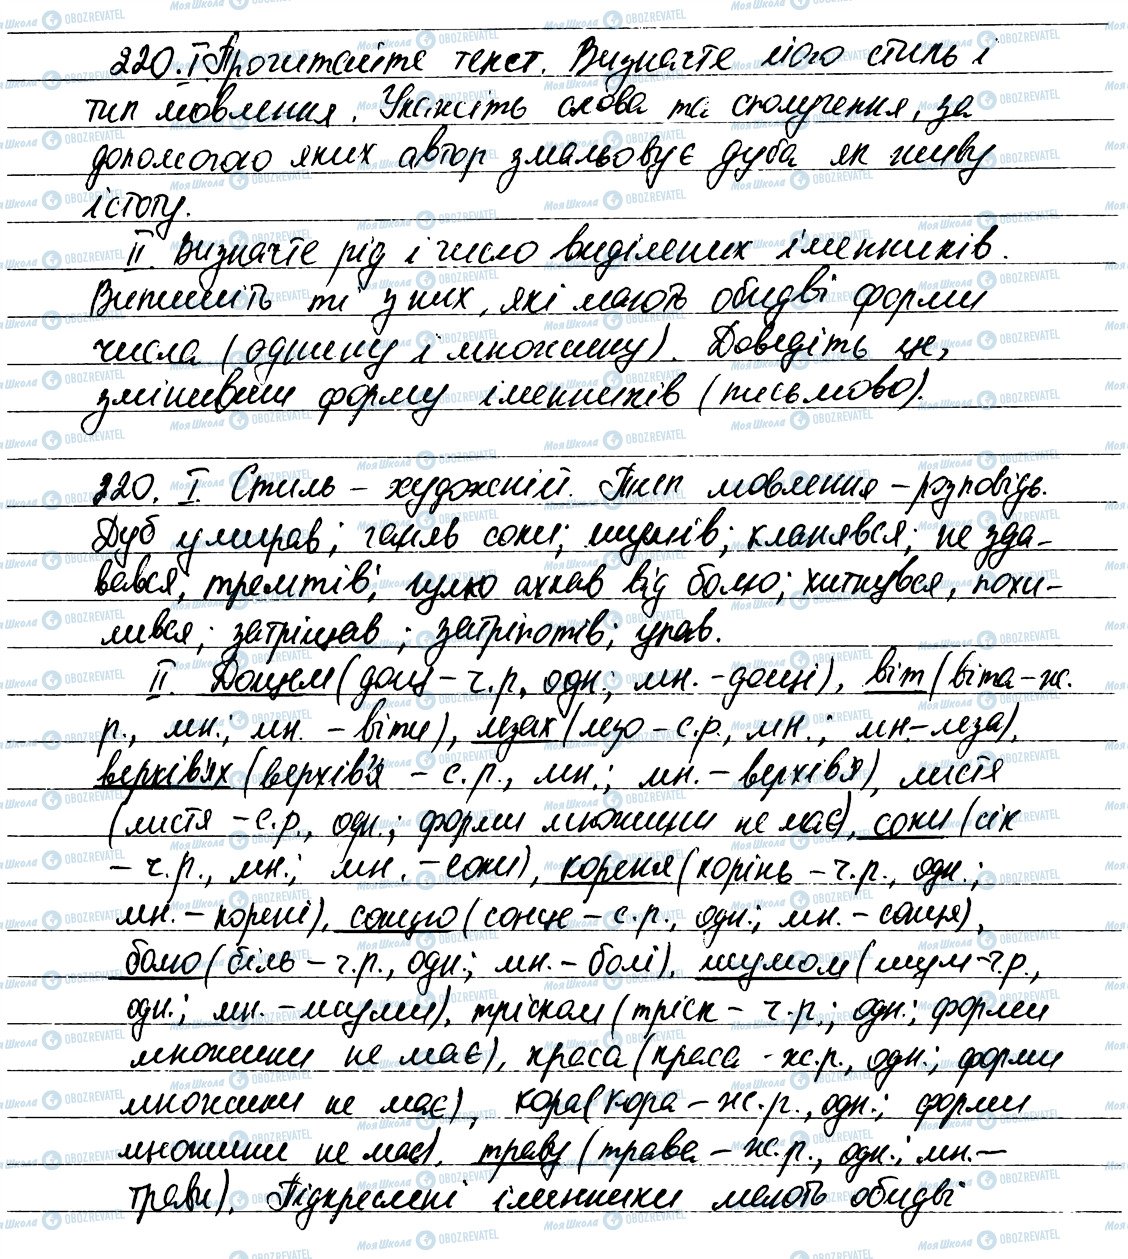 220. I Прочитайте текст. Визначте його стиль і
тип мовлення. Укажіть слова та сполучення, за
допомогою яких автор змальовує дуба як живу
істоту.
II. Визначте рід і число виділених іменників.
Випишіть ті з них, які мають обидві форми
числа (однину і множину). Доведіть це,
змінивши форму іменників (письмово).
220. I. Стиль – художній. Тип мовлення – розповідь.
Дуб умирав; ганяв соки; шумів; кланявся; не зда-
вався, тремтів; гулко ахкав від болю; хитнувся, похи-
лився; затріщав; затріпотів; упав.
II. Дощем (дощ – ч.р., одн.; мн. – дощі), віт (віта – ж.
р., мн.; мн. – віти), лезах (лезо – с.р., мн.; мн – леза),
верхів'ях (верхів'я – с.р., мн.; мн. – верхів'я), листя
(листя – с.р., одн.; форми множини не має), соки (сік
– ч.р., мн.; мн. – соки), кореня (корінь – ч.р., одн.;
мн. – корені), сонцю (сонце – с.р., одн.; мн. – сонця),
болю (біль – ч.р., одн.; мн. – болі), шумом (шум – ч.р.,
одн.; мн. – шуми), тріском (тріск – ч.р.; одн.; форми
множини не має), краса (краса – ж.р., одн.; форми
множини не має), кора (кора – ж.р., одн.; форми
множини не має), траву (трава – ж.р., одн.; мн. –
трави). Підкреслені іменники мають обидві